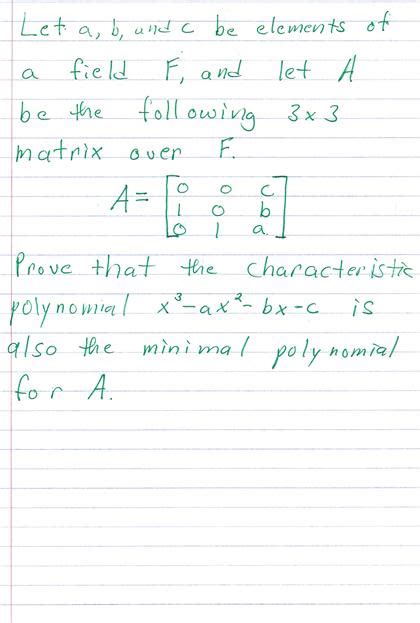 Let a, b, and c be elements of
a field F, and let A
be the following 3x3
matrix over F.
A = [0 0 c
1 0 b
0 1 a]
Prove that the characteristic
polynomial x³-ax²-bx-c is
also the minimal polynomial
for A.